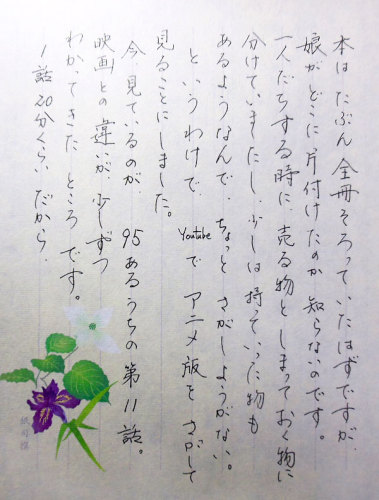 本は たぶん 全冊そろって いたはずですが、
娘が どこに 片付けたのか 知らないのです。
一人だちする時に、売る物と しまっておく物に
分けていましたし、少しは持っていった物も
あるようなんで、ちょっと さがしようがない。
というわけで、Youtubeで アニメ版を さがして
見ることにしました。
今、見ているのが、95あるうちの 第11話。
映画との 違いが、少しずつ
わかってきた ところ です。
1話20分くらい だから、